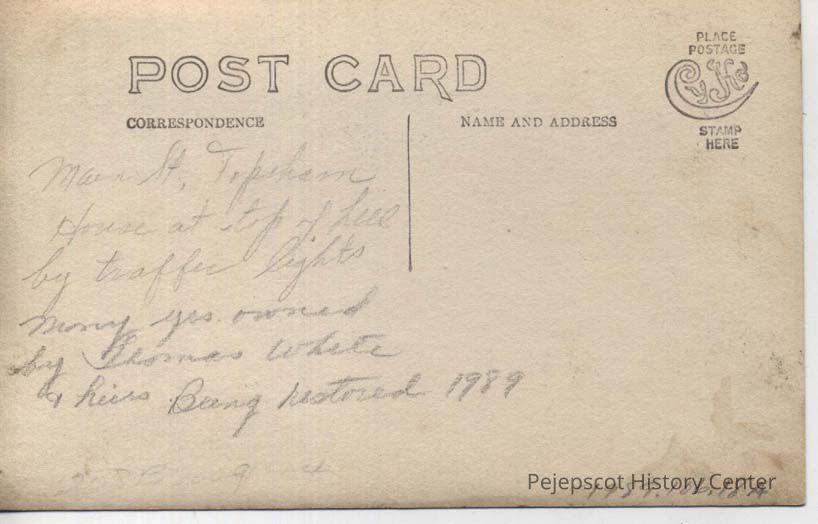 PLACE
POSTAGE
STAMP
HERE
POST CARD
CORRESPONDENCE
NAME AND ADDRESS
Main St, Topsham
House at top of hill
by traffic lights
Many yrs owned
by Thomas White
& heirs Being restored 1989
Pejepscot History Center